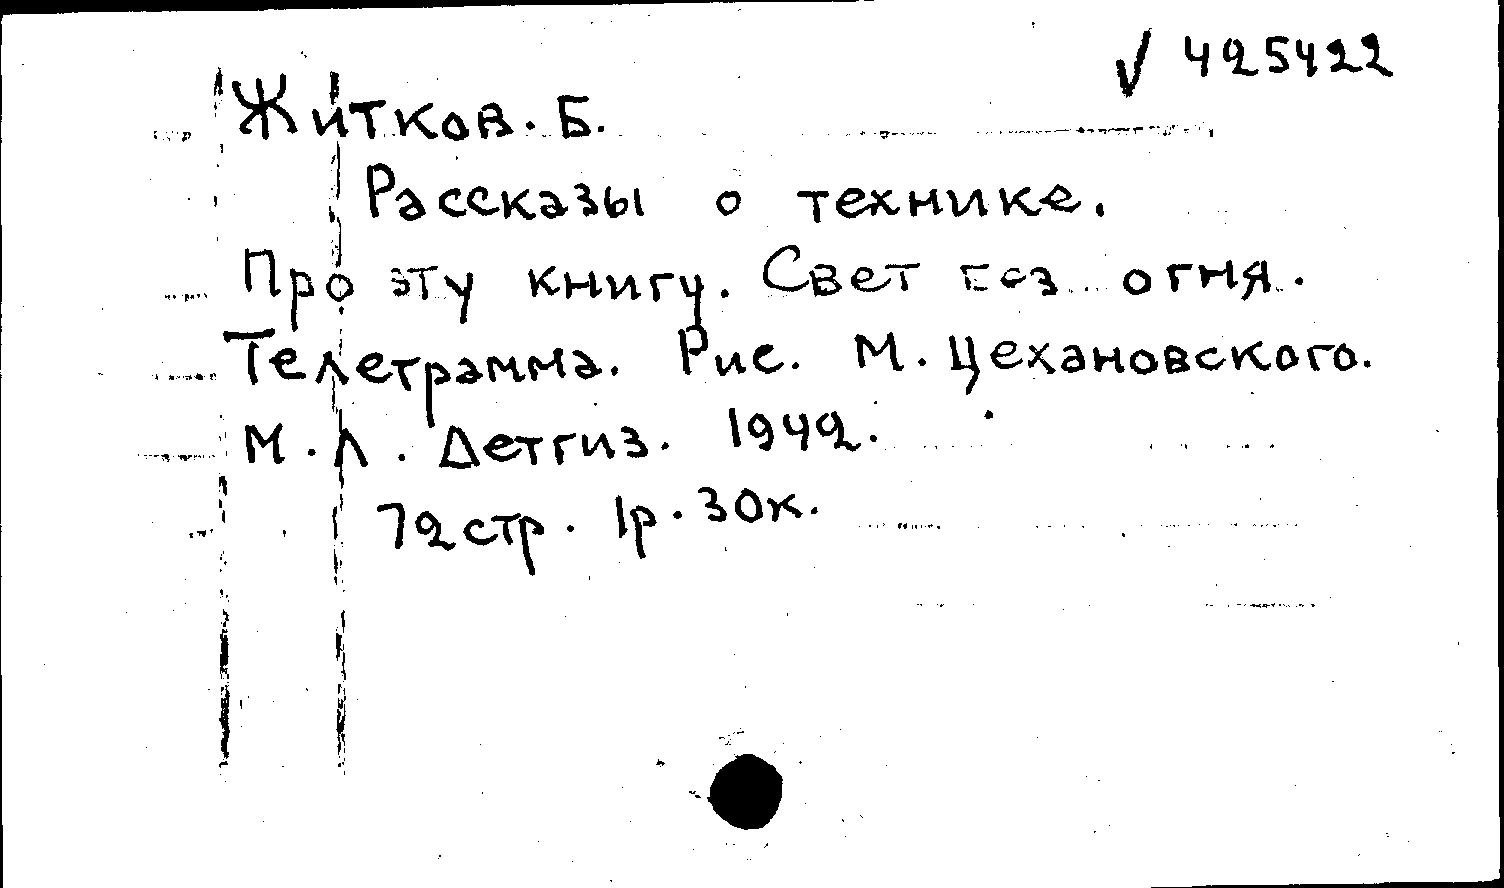 √ 425422
Житков. Б.
Рассказы о технике.
Про эту книгу. Свет без огня.
Телеграмма. Рис. М. Цехановского.
М. Л. Детгиз. 1942.
72 стр. 1р. 30к.